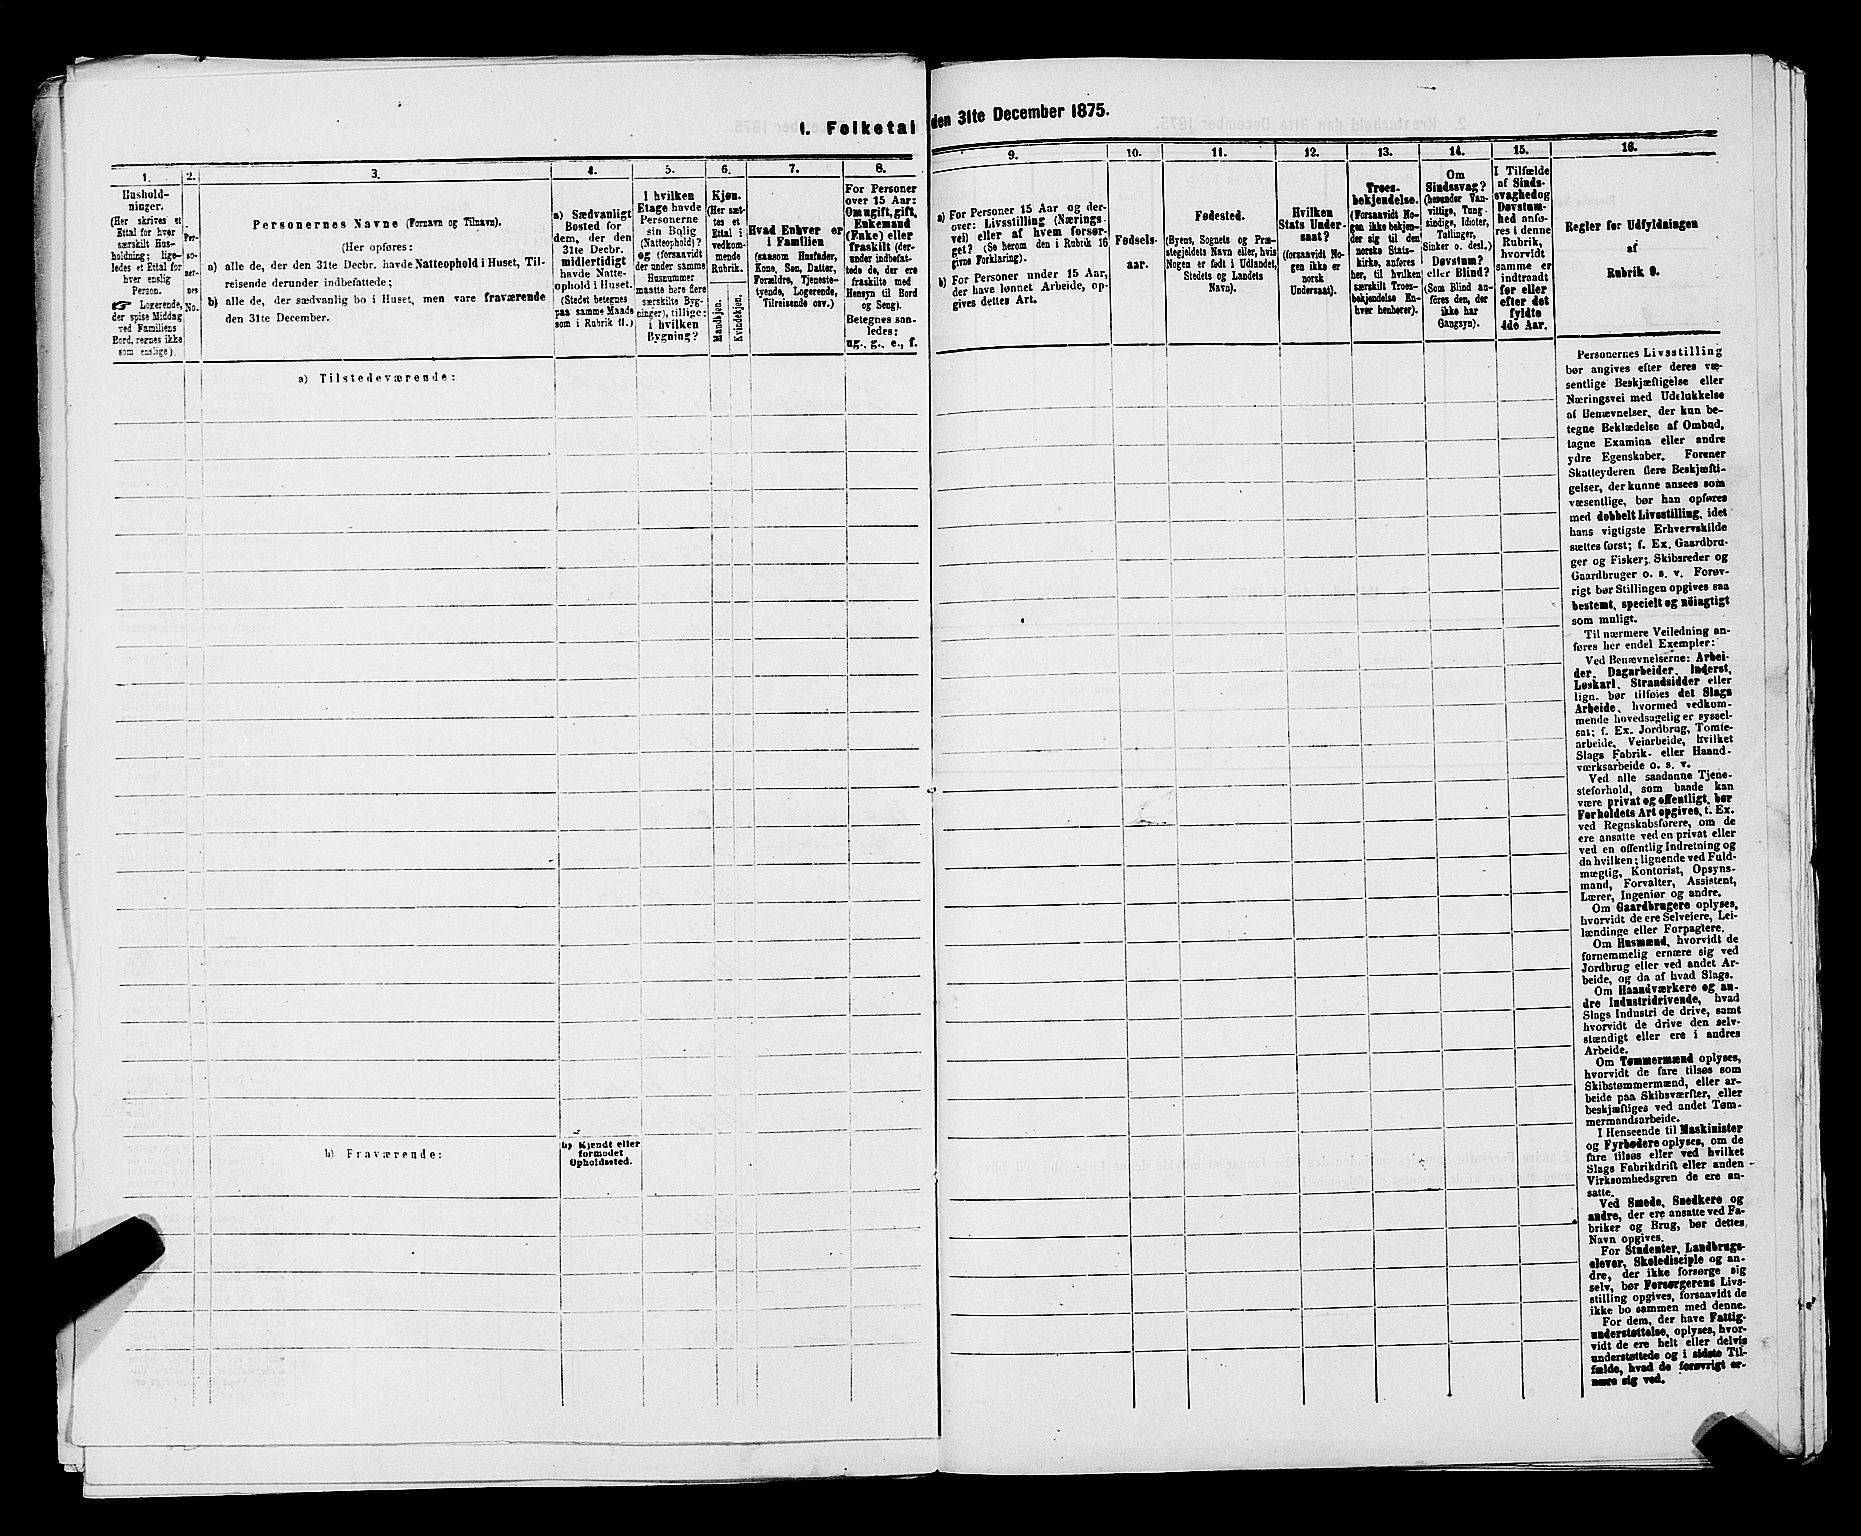 1. Folketal den 31te December 1875.
1.
Hushold-
ninger.
(Her skrives et
Ettal for hver
særskilt Hus-
holdning; lige-
ledes et Ettal for
hver enslig
Person.
☞ Logerende,
der spise Middag
ved Familiens
Bord, regnes ikke
som enslige).
2.
Per-
so-
ner-
nes
No.
3.
Personernes Navne (Fornavn og Tilnavn).
(Her opføres:
a) alle de, der den 31te Decbr. havde Natteophold i Huset, Til-
reisende derunder indbefattede;
b) alle de, der sædvanlig bo i Huset, men vare fraværende
den 31te December.
4.
a) Sædvanligt
Bosted for
dem, der den
31te Decbr.
midlertidigt
havde Natte-
ophold i Huset.
(Stedet betegnes
paa samme Maade
som i Rubrik 11.)
5.
I hvilken
Etage havde
Personerne
sin Bolig
(Natteophold)?
og (forsaavidt
der under samme
Husnummer
maatte høre flere
særskilte Byg-
ninger), tillige:
i hvilken
Bygning?
6.
Kjøn.
(Her sæt-
tes et
Ettal i
vedkom-
mende
Rubrik.
Mandkjøn.
Kvindekjøn.
7.
Hvad Enhver er
i Familien
(saasom Husfader,
Kone, Søn, Datter,
Forældre, Tjeneste-
tyende, Logerende,
Tilreisende osv.)
8.
For Personer
over 15 Aar:
Om ugift, gift,
Enkemand
(Enke) eller
fraskilt (der-
under indbefat-
tede de, der ere
fraskilte med
Hensyn til Bord
og Seng).
Betegnes saa-
ledes:
ug., g., e., f.
9.
a) For Personer 15 Aar og der-
over: Livsstilling (Nærings-
vei) eller af hvem forsør-
get? (Se herom den i Rubrik 16
givne Forklaring).
b) For Personer under 15 Aar,
der have lønnet Arbeide, op-
gives dettes Art.
10.
Fødsels-
aar.
11.
Fødested.
(Byens, Sognets og Præ-
stegjeldets Navn eller, hvis
Nogen er født i Udlandet,
Stedets og Landets
Navn).
12.
Hvilken
Stats Under-
saat?
(forsaavidt No-
gen ikke er
norsk
Undersaat).
13.
Troes-
bekjendelse.
(Forsaavidt No-
gen ikke bekjen-
der sig til den
norske Stats-
kirke, anføres
her, til hvilken
særskilt Troes-
bekjendelse En-
hver henhører).
14.
Om
Sindssvag?
(herunder Van-
vittige, Tung-
sindige, Idioter,
Tullinger,
Sinker o. desl.)
Døvstum?
eller Blind?
(Som Blind an-
føres den, der
ikke har
Gangsyn).
15.
I Tilfælde
af Sinds-
svaghed og
Døvstum-
hed anfø-
res i denne
Rubrik,
hvorvidt
samme er
indtraadt
før eller
efter det
fyldte
4de Aar.
16.
Regler for Udfyldningen
af
Rubrik 9.
a) Tilstedeværende:
b) Fraværende:
b) Kjendt eller
formodet
Opholdssted.
Personernes Livsstilling
bør angives efter deres væ-
sentlige Beskjæftigelse eller
Næringsvei med Udelukkelse
af Benævnelser, der kun be-
tegne Beklædelse af Ombud,
tagne Examina eller andre
ydre Egenskaber. Forener
Skatteyderen flere Beskjæfti-
gelser, der kunne ansees som
væsentlige, bør han opføres
med dobbelt Livsstilling, idet
hans vigtigste Erhvervskilde
sættes først; f. Ex. Gaardbru-
ger og Fisker; Skibsreder og
Gaardbruger o. s. v. Forøv-
rigt bør Stillingen opgives saa
bestemt, specielt og nöiagtigt
som muligt.
Til nærmere Veiledning an-
føres her endel Exempler:
Ved Benævnelserne: Arbei-
der, Dagarbeider, Inderst,
Løskarl, Strandsidder eller
lign. bør tilføies det Slags
Arbeide, hvormed vedkom-
mende hovedsagelig er syssel-
sat; f. Ex. Jordbrug, Tomte-
arbeide, Veiarbeide, hvilket
Slags Fabrik- eller Haand-
værksarbeide o. s. v.
Ved alle saadanne Tjene-
steforhold, som baade kan
være privat og offentligt, bør
Forholdets Art opgives, f. Ex.
ved Regnskabsførere, om de
ere ansatte ved en privat eller
ved en offentlig Indretning og
da hvilken; lignende ved Fuld-
mægtig, Kontorist, Opsyns-
mand, Forvalter, Assistent,
Lærer, Ingeniør og andre.
Om Gaardbrugere oplyses,
hvorvidt de ere Selveiere, Lei-
lændinge eller Forpagtere.
Om Husmænd, hvorvidt de
fornemmelig ernære sig ved
Jordbrug eller ved andet Ar-
beide, og da af hvad Slags.
Om Haandværkere og an-
dre Industridrivende, hvad
Slags Industri de drive, samt
hvorvidt de drive den selv-
stændigt eller ere i andres
Arbeide.
Om Tømmermænd oplyses,
hvorvidt de fare tilsøs som
Skibstømmermænd, eller ar-
beide paa Skibsværfter, eller
beskjæftiges ved andet Tøm-
mermandsarbeide.
I Henseende til Maskinister
og Fyrbødere oplyses, om de
fare tilsøs eller ved hvilket
Slags Fabrikdrift eller anden
Virksomhedsgren de ere an-
satte.
Ved Smede, Snedkere og
andre, der ere ansatte ved Fa-
briker og Brug, bør dettes
Navn opgives.
For Studenter, Landbrugs-
elever, Skoledisciple og an-
dre, der ikke forsørge sig
selv, bør Forsørgerens Livs-
stilling opgives, forsaavidt de
ikke bo sammen med denne.
For dem, der have Fattig-
understøttelse, oplyses, hvor-
vidt de ere helt eller delvis
understøttede og i sidste Til-
fælde, hvad de forøvrigt er-
nære sig ved.